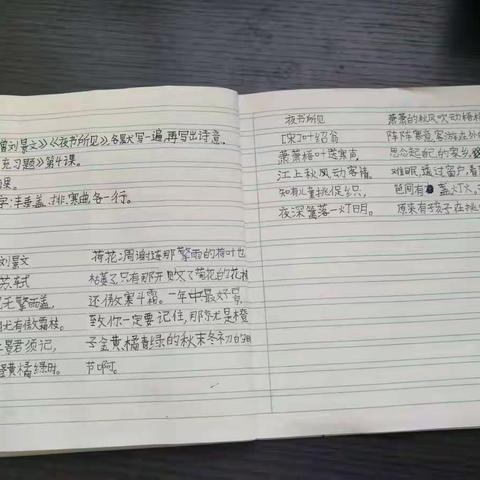 刘景文》《夜书所见》,各默写一遍,再写出诗意。
练习题》第4课。
丰,盖、排、寒曲,各一行。
刘景文
苏轼
无擎雨盖,
犹有傲霜枝。
景君须记,
橙黄橘绿时。
荷花凋谢,连那擎雨的荷叶也
枯萎了,只有那开败了菊花的花枝
还傲寒斗霜。一年中最好景
致你一定要记住,那尤是橙
子金黄,橘青绿的秋末冬初的时
节啊。
夜书所见
[宋]叶绍翁
萧萧梧叶送寒声,
江上秋风动客情。
知有儿童挑促织,
夜深篱落一灯明。
萧萧的秋风吹动梧桐
阵阵寒意客游在外
思念起己的家乡
难眠,透过窗户,看
间有盏灯火
原来有孩子在挑